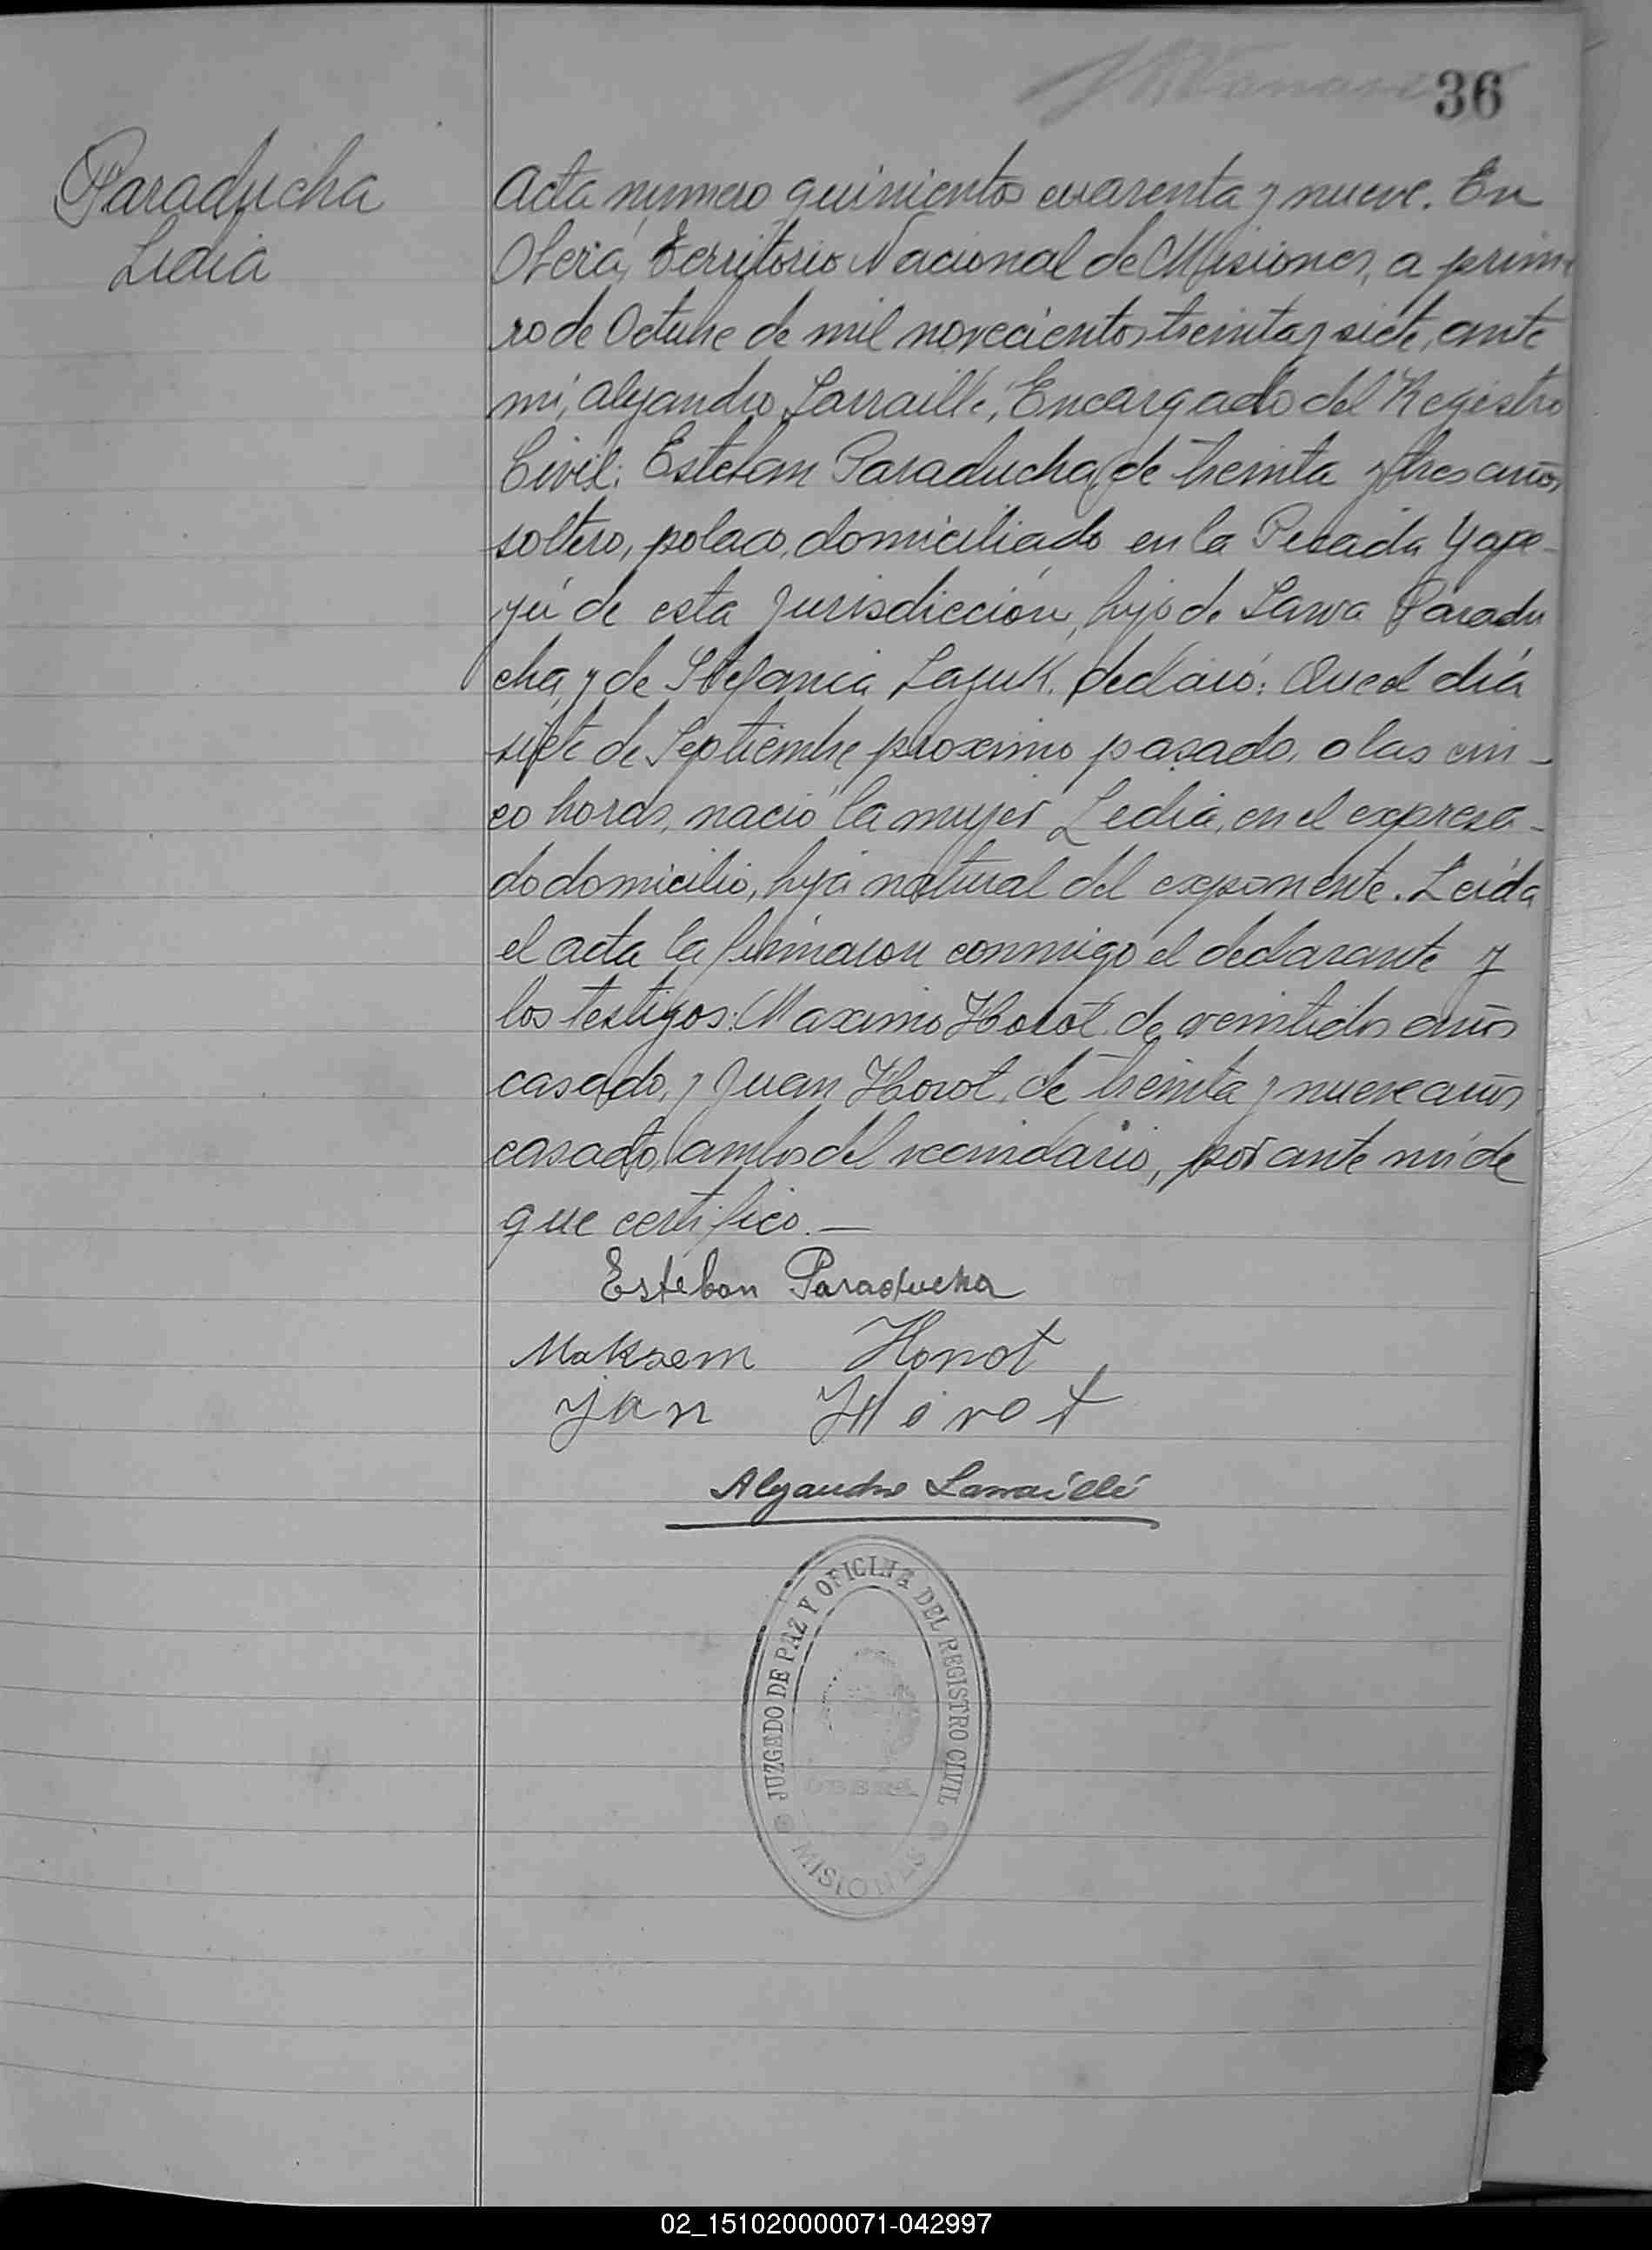 36
Paraducha
Lidia
Acta numero quinientos cuarenta y nueve. En
Oberá, Territorio Nacional de Misiones, a prime
ro de Octubre de mil novecientos treinta y siete, ante
mi, Alejandro Larraillé, Encargado del Registro
Civil: Esteban Paraducha, de treinta y tres años
soltero, polaco, domiciliado en la Picada Yape-
yú de esta jurisdicción, hijo de Sawa Paradu
cha, y de Stefania Lazuk, declaró: Que el día
siete de Septiembre proximo pasado, a las cin-
co horas, nació la mujer Lidia, en el expresa-
do domicilio, hija natural del exponente. Leída
el acta la firmaron conmigo el declarante y
los testigos: Maximo Horot, de veintidos años
casado, y Juan Horot, de treinta y nueve años
casado, ambos del vecindario, por ante mí de
que certifico.—
Esteban Paraducha
Maksem Horot
Jan Horot
Alejandro Larraillé
JUZGADO DE PAZ Y OFICINA DEL REGISTRO CIVIL
OBERÁ
MISIONES
02_151020000071-042997